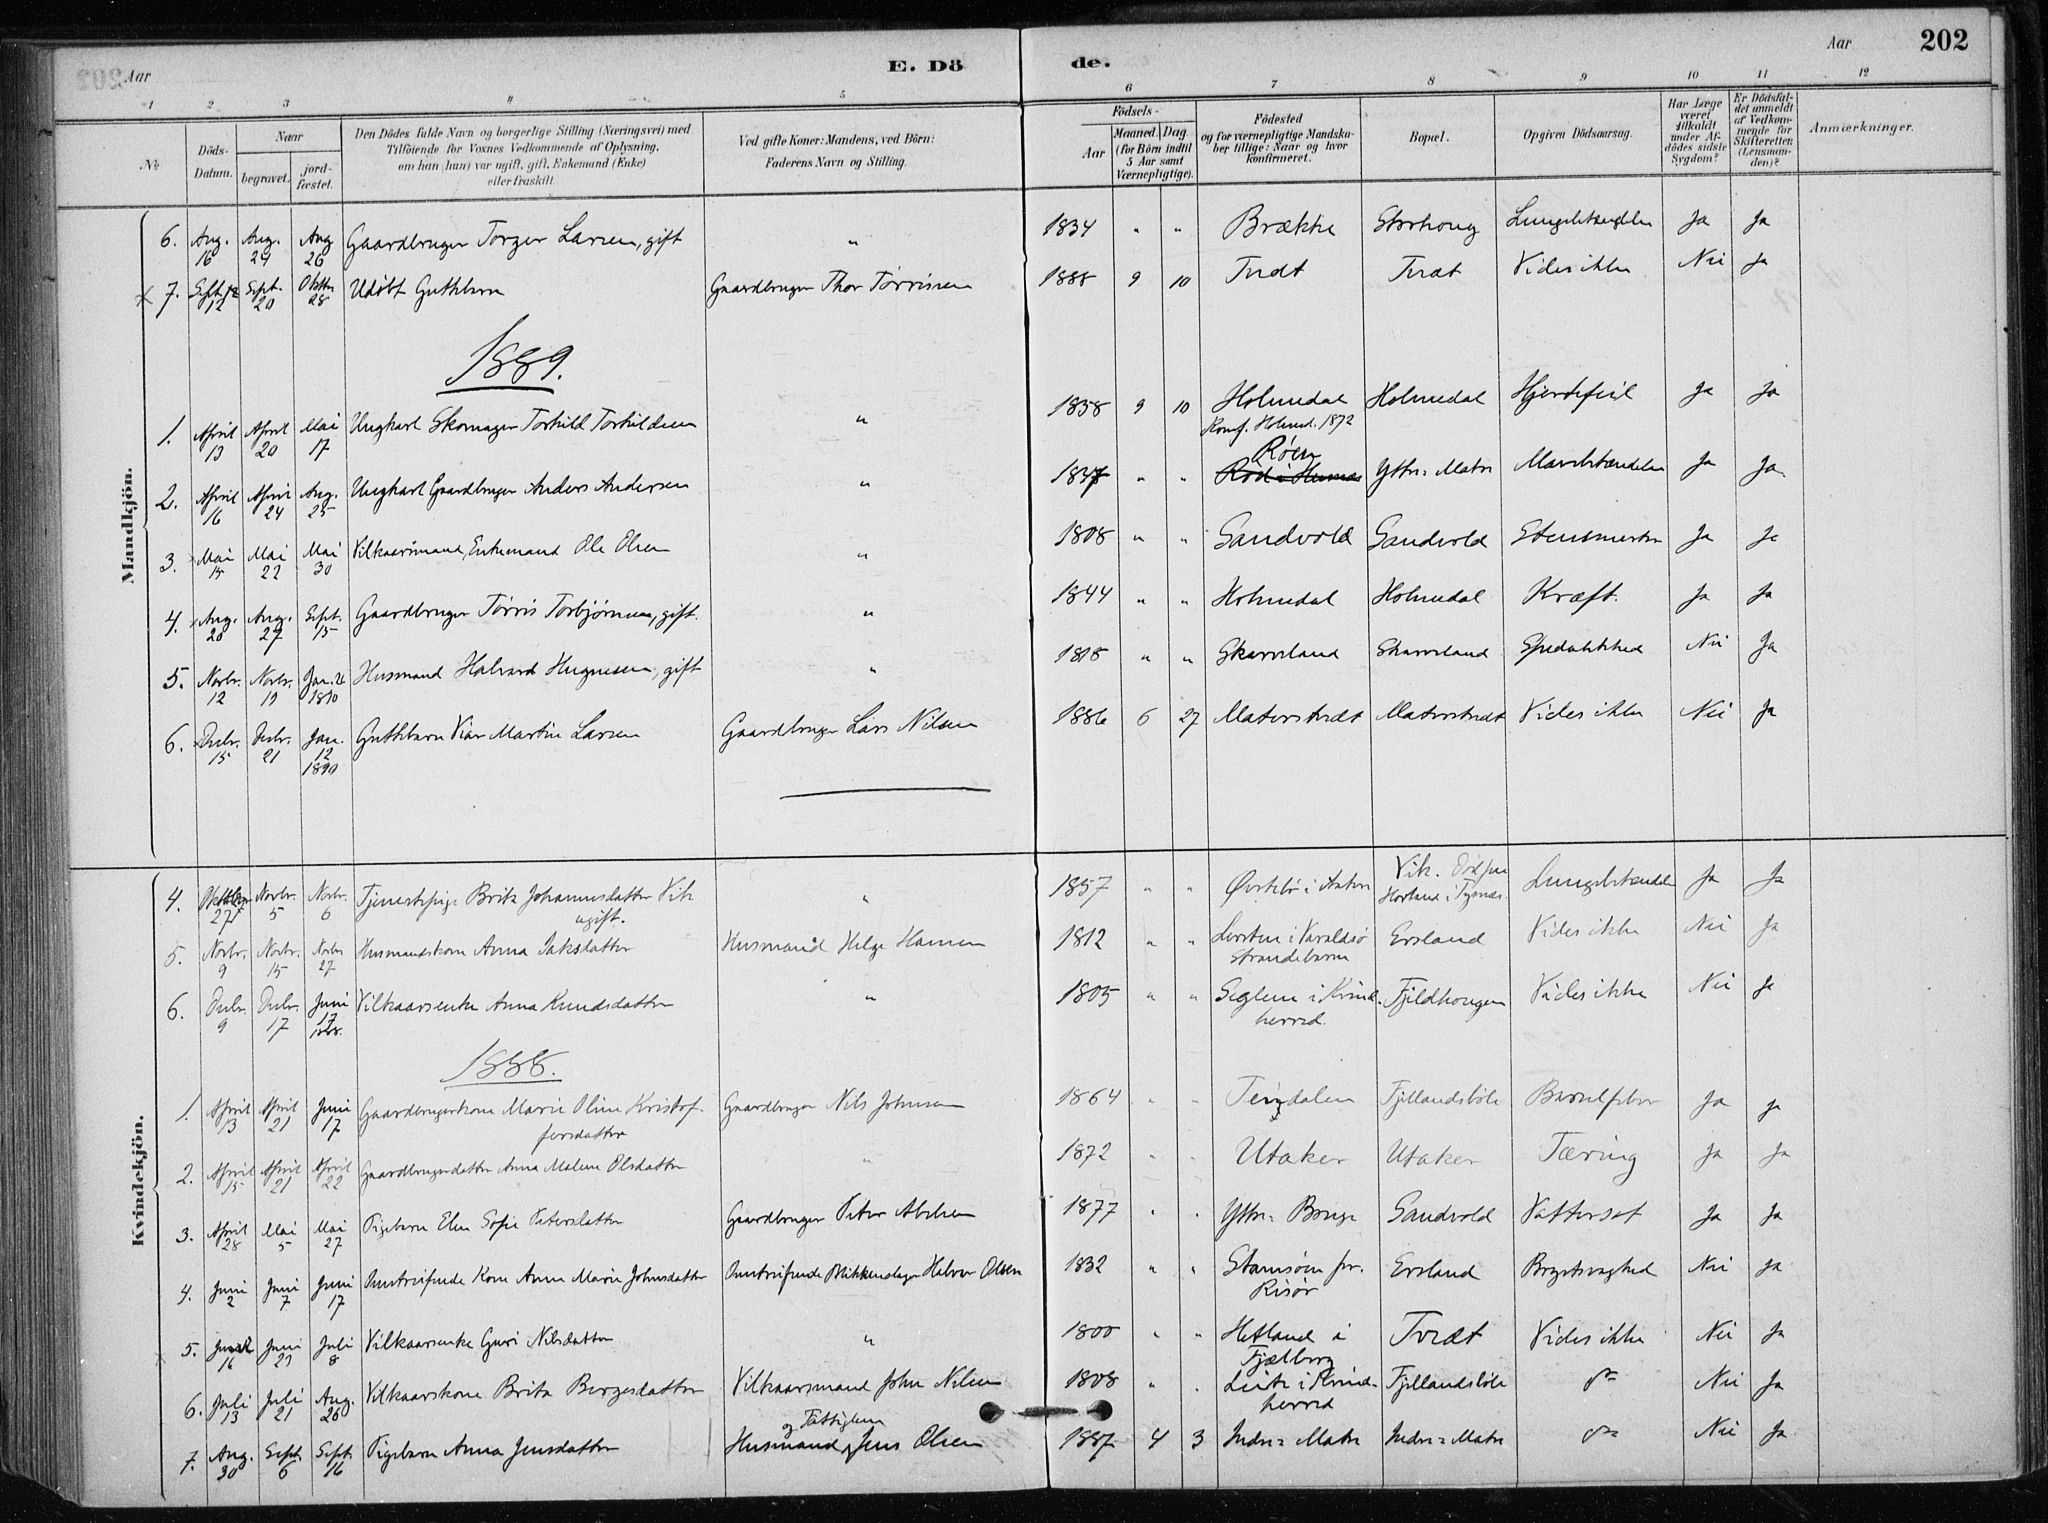 Aar E. Dö de. Aar 202
1 2 3 4 5 6 7 8 9 10 11 12
№ Döds-Datum. Naar begravet. jord-fæstet. Den Dödes fulde Navn og borgerlige Stilling (Næringsvei) med Tilföiende for Voxnes Vedkommende af Oplysning, om han (hun) var ugift, gift, Enkemand (Enke) eller fraskilt. Ved gifte Koner: Mandens, ved Börn: Faderens Navn og Stilling. Födsels- Aar Maaned. Dag. (for Börn indtil 5 Aar samt Værnepligtige). Födested og for værnepligtige Mandskaber tillige: Naar og hvor konfirmeret. Bopæl. Opgiven Dödsaarsag. Har Læge været tilkaldt under Afdödes sidste Sygdom? Er Dödsfaldet anmeldt af Vedkommende for Skifteretten (Lensmanden)? Anmærkninger.
Mandkjön.
6. Aug. 16 Aug. 24 Aug 26 Gaardbruger Torger Larsen, gift " 1834 " " Brække Storhoug Lungebetændelse Ja Ja
7. Sept. 12 Sept. 20 Oktbr. 28 Udöbt Guttebarn Gaardbruger Thor Tørrisen 1888 9 10 Tvedt Tvedt Vides ikke Nei Ja
1889.
1. April 13 April 20 Mai 17 Ungkarl Skomager Torkild Torkildsen " 1858 9 10 Holmedal Konf. Holmed. 1872 Holmedal Hjertefeil Ja Ja
2. April 16 April 24 Aug. 25 Ungkarl Gaardbruger Anders Andersen " 1847 " " Røen Ytre= Matre Ja Ja
3. Mai 15 Mai 22 Mai 30 Vilkaarsmand, Enkemand Ole Olsen " 1808 " " Sandvold Sandvold Stensmerter Ja Ja
4. Aug. 20 Aug. 27 Sept. 15 Gaardbruger Tørris Torbjørnsen, gift. " 1844 " " Holmedal Holmedal Kræft. Ja Ja
5. Novbr. 12 Novbr. 19 Jan. 26 1890 Husmand Halvard Hugnesen, gift " 1818 " " Skarveland Skarveland Spedalskhed Nei Ja
6. Decbr. 15 Decbr. 21 Jan. 12 1890 Guttebarn Martin Larsen Gaardbruger Lars Nilsen 1886 6 27 Matrestvedt Matrestvedt Vides ikke Nei Ja
Kvindekjön.
4. Oktober 27 Novbr. 5 Novbr. 6 Tjenestepige Brita Johannesdatter Vik ugift. " 1857 " " Øvrebö i Vik. Död paa Horland i Tysnæs. Lungebetændelse Ja Ja
5. Novbr. 9 Novbr. 15 Novbr 27 Husmandskone Anna Isaksdatter Husmand Helge Hansen 1812 " " i Varaldsö Strandebarm Ersland Vides ikke Nei Ja
6. Decbr. 9 Decbr. 17 Juni 17 1888. Vilkaarsenke Anna Knudsdatter " 1805 " " Seglem i Kvindherred. Fjeldhougen Vides ikke Nei Ja
1888.
1. April 13 April 21 Juni 17 Gaardbrugerkone Marie Oline Kristoffersdatter Gaardbruger Nils Johnsen 1864 " " Teigdalen Fjellandsböle Barselfeber Ja Ja
2. April 15 April 21 April 22 Gaardbrugerdatter Anna Malene Olsdatter " 1872 " " Utaker Utaker Tæring Ja Ja
3. April 28 Mai 5 Mai 27 Pigebarn Elen Sofie Petersdatter Gaardbruger Peter Abelsen 1877 " " Ytre= Berge Sandvold Vattersot Ja Ja
4. Juni 2 Juni 7 Juni 17 Omstreifende Kone Anne Marie Johnsdatter Omstreifende Blikkenslager Halvor Olsen 1832 " " Stamsøen pr. Risør Ersland Brystsvaghed Nei Ja
5. Juni 16 Juni 23 Juli 8 Vilkaarsenke Guri Nilsdatter " 1800 " " Hetland i Fjælberg Tvedt Vides ikke Nei Ja
6. Juli 13 Juli 21 Aug. 26 Vilkaarskone Brita Bergesdatter Vilkaarsmand John Nilsen 1808 " " i Kvindherred Fjellandsböle Do Nei Ja
7. Aug. 30 Sept. 6 Sept. 16 Pigebarn Anna Jensdatter Husmand og Fattiglem Jens Olsen 1887 4 3 Indre= Matre Indre= Matre Do Nei Ja